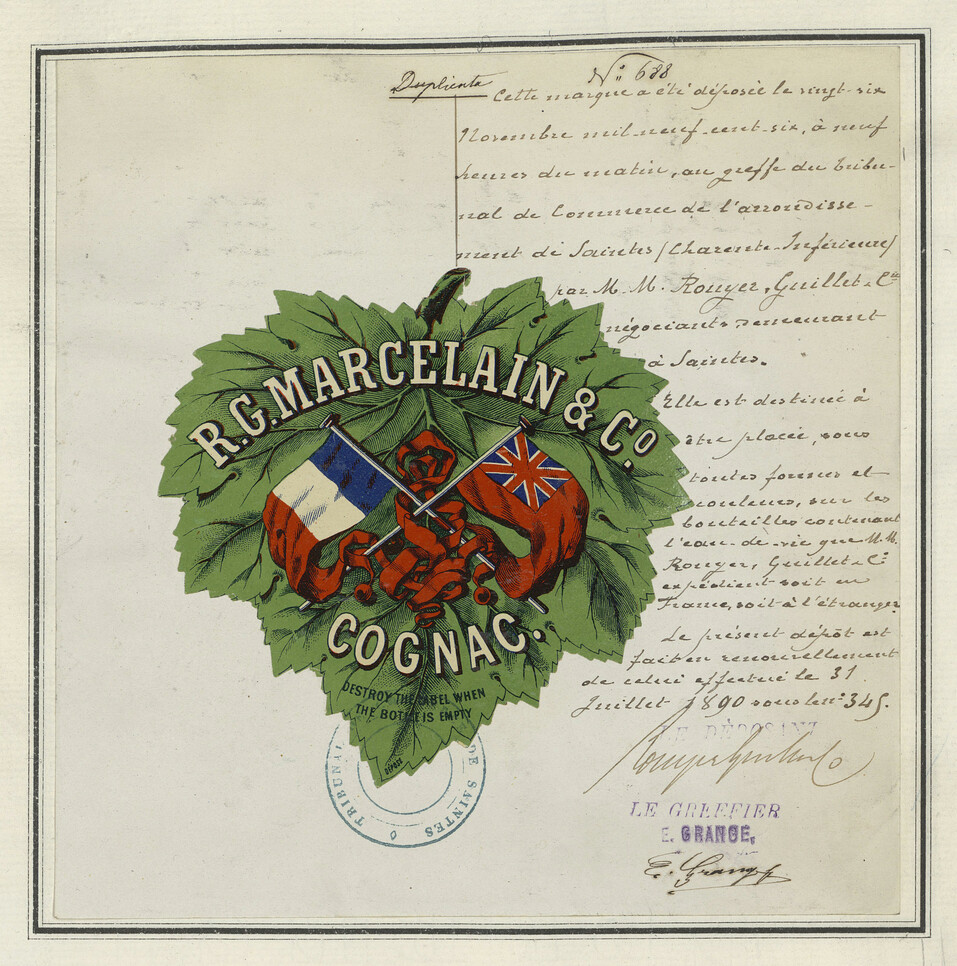 Duplicata
N° 688
Cette marque a été déposée le vingt-six
Novembre mil-neuf-cent-six, à neuf
heures du matin, au greffe du tribu-
nal de Commerce de l'arrondisse-
ment de Saintes (Charente-Inférieure)
par M. M. Rouyer, Guillet & Cie
négociants demeurant
à Saintes.
Elle est destinée à
être placée, sous
toutes formes et
couleurs, sur les
bouteilles contenant
l'eau-de-vie que M. M.
Rouyer, Guillet & Cie
expédient soit en
France, soit à l'étranger.
Le présent dépôt est
fait en renouvellement
de celui effectué le 31
Juillet 1890 sous le n° 345.
LE DÉPOSANT
Rouyer Guillet & Co
LE GREFFIER
E. GRANGÉ,
E. Grangé
R.G. MARCELAIN & Co.
COGNAC.
DESTROY THE LABEL WHEN
THE BOTTLE IS EMPTY
DÉPOSÉ
TRIBUNAL DE SAINTES